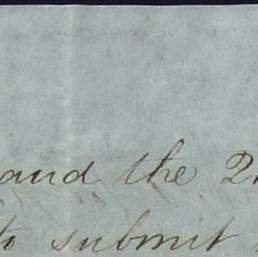 and the 2
to submit